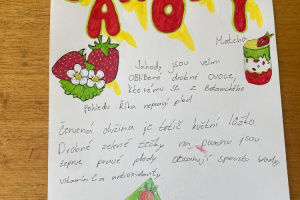 JAHODY
Matcha
Jahody jsou velmi
oblíbené drobné ovoce,
kterému se z botanického
pohledu říká nepravý plod
Červená dužina je totiž květní lůžko.
Drobné zelené tečky na povrchu jsou
teprve pravé plody. obsahují spoustu vody,
vitamin C a antioxidanty